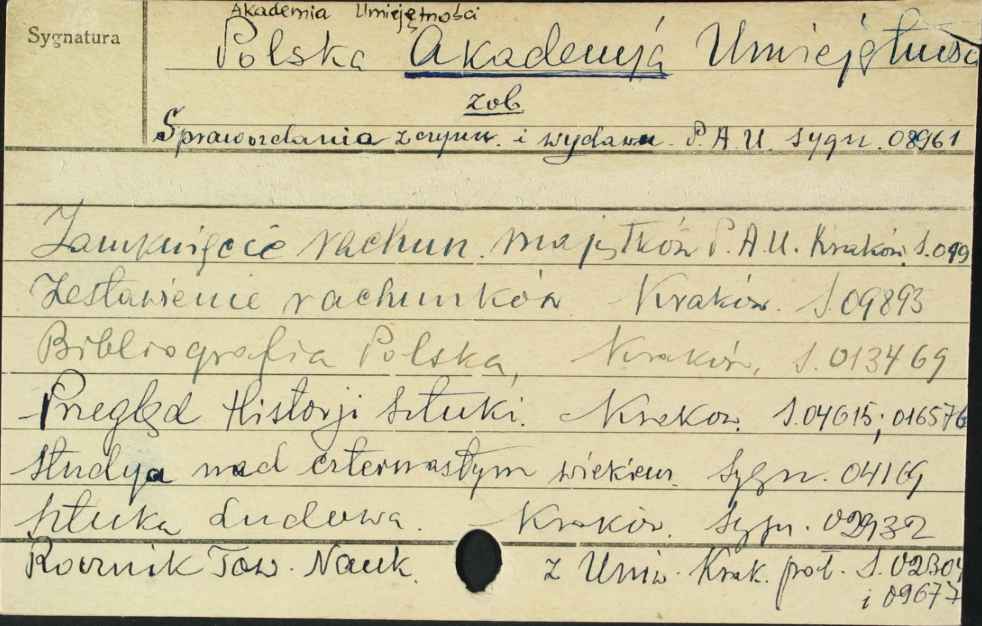 Akademia Umiejętności
Sygnatura
Polska Akademja Umiejętności
zob
Sprawozdania z czynn. i wydawn. P. A. U. sygn. 08961
Zamknięcie rachun. majątków P. A. U. Kraków. S.099
Zestawienie rachunków Kraków. S.09893
Bibliografia Polska, Kraków, S.013469
Przegląd Historji Sztuki. Krakow. S.04615; 016576
Studya nad czternastym wiekiem. Sygn. 04169
Sztuka Ludowa. Kraków. Sygn. 02932
Rocznik Tow. Nauk. z Uniw. Krak. poł. S.02304
i 09677